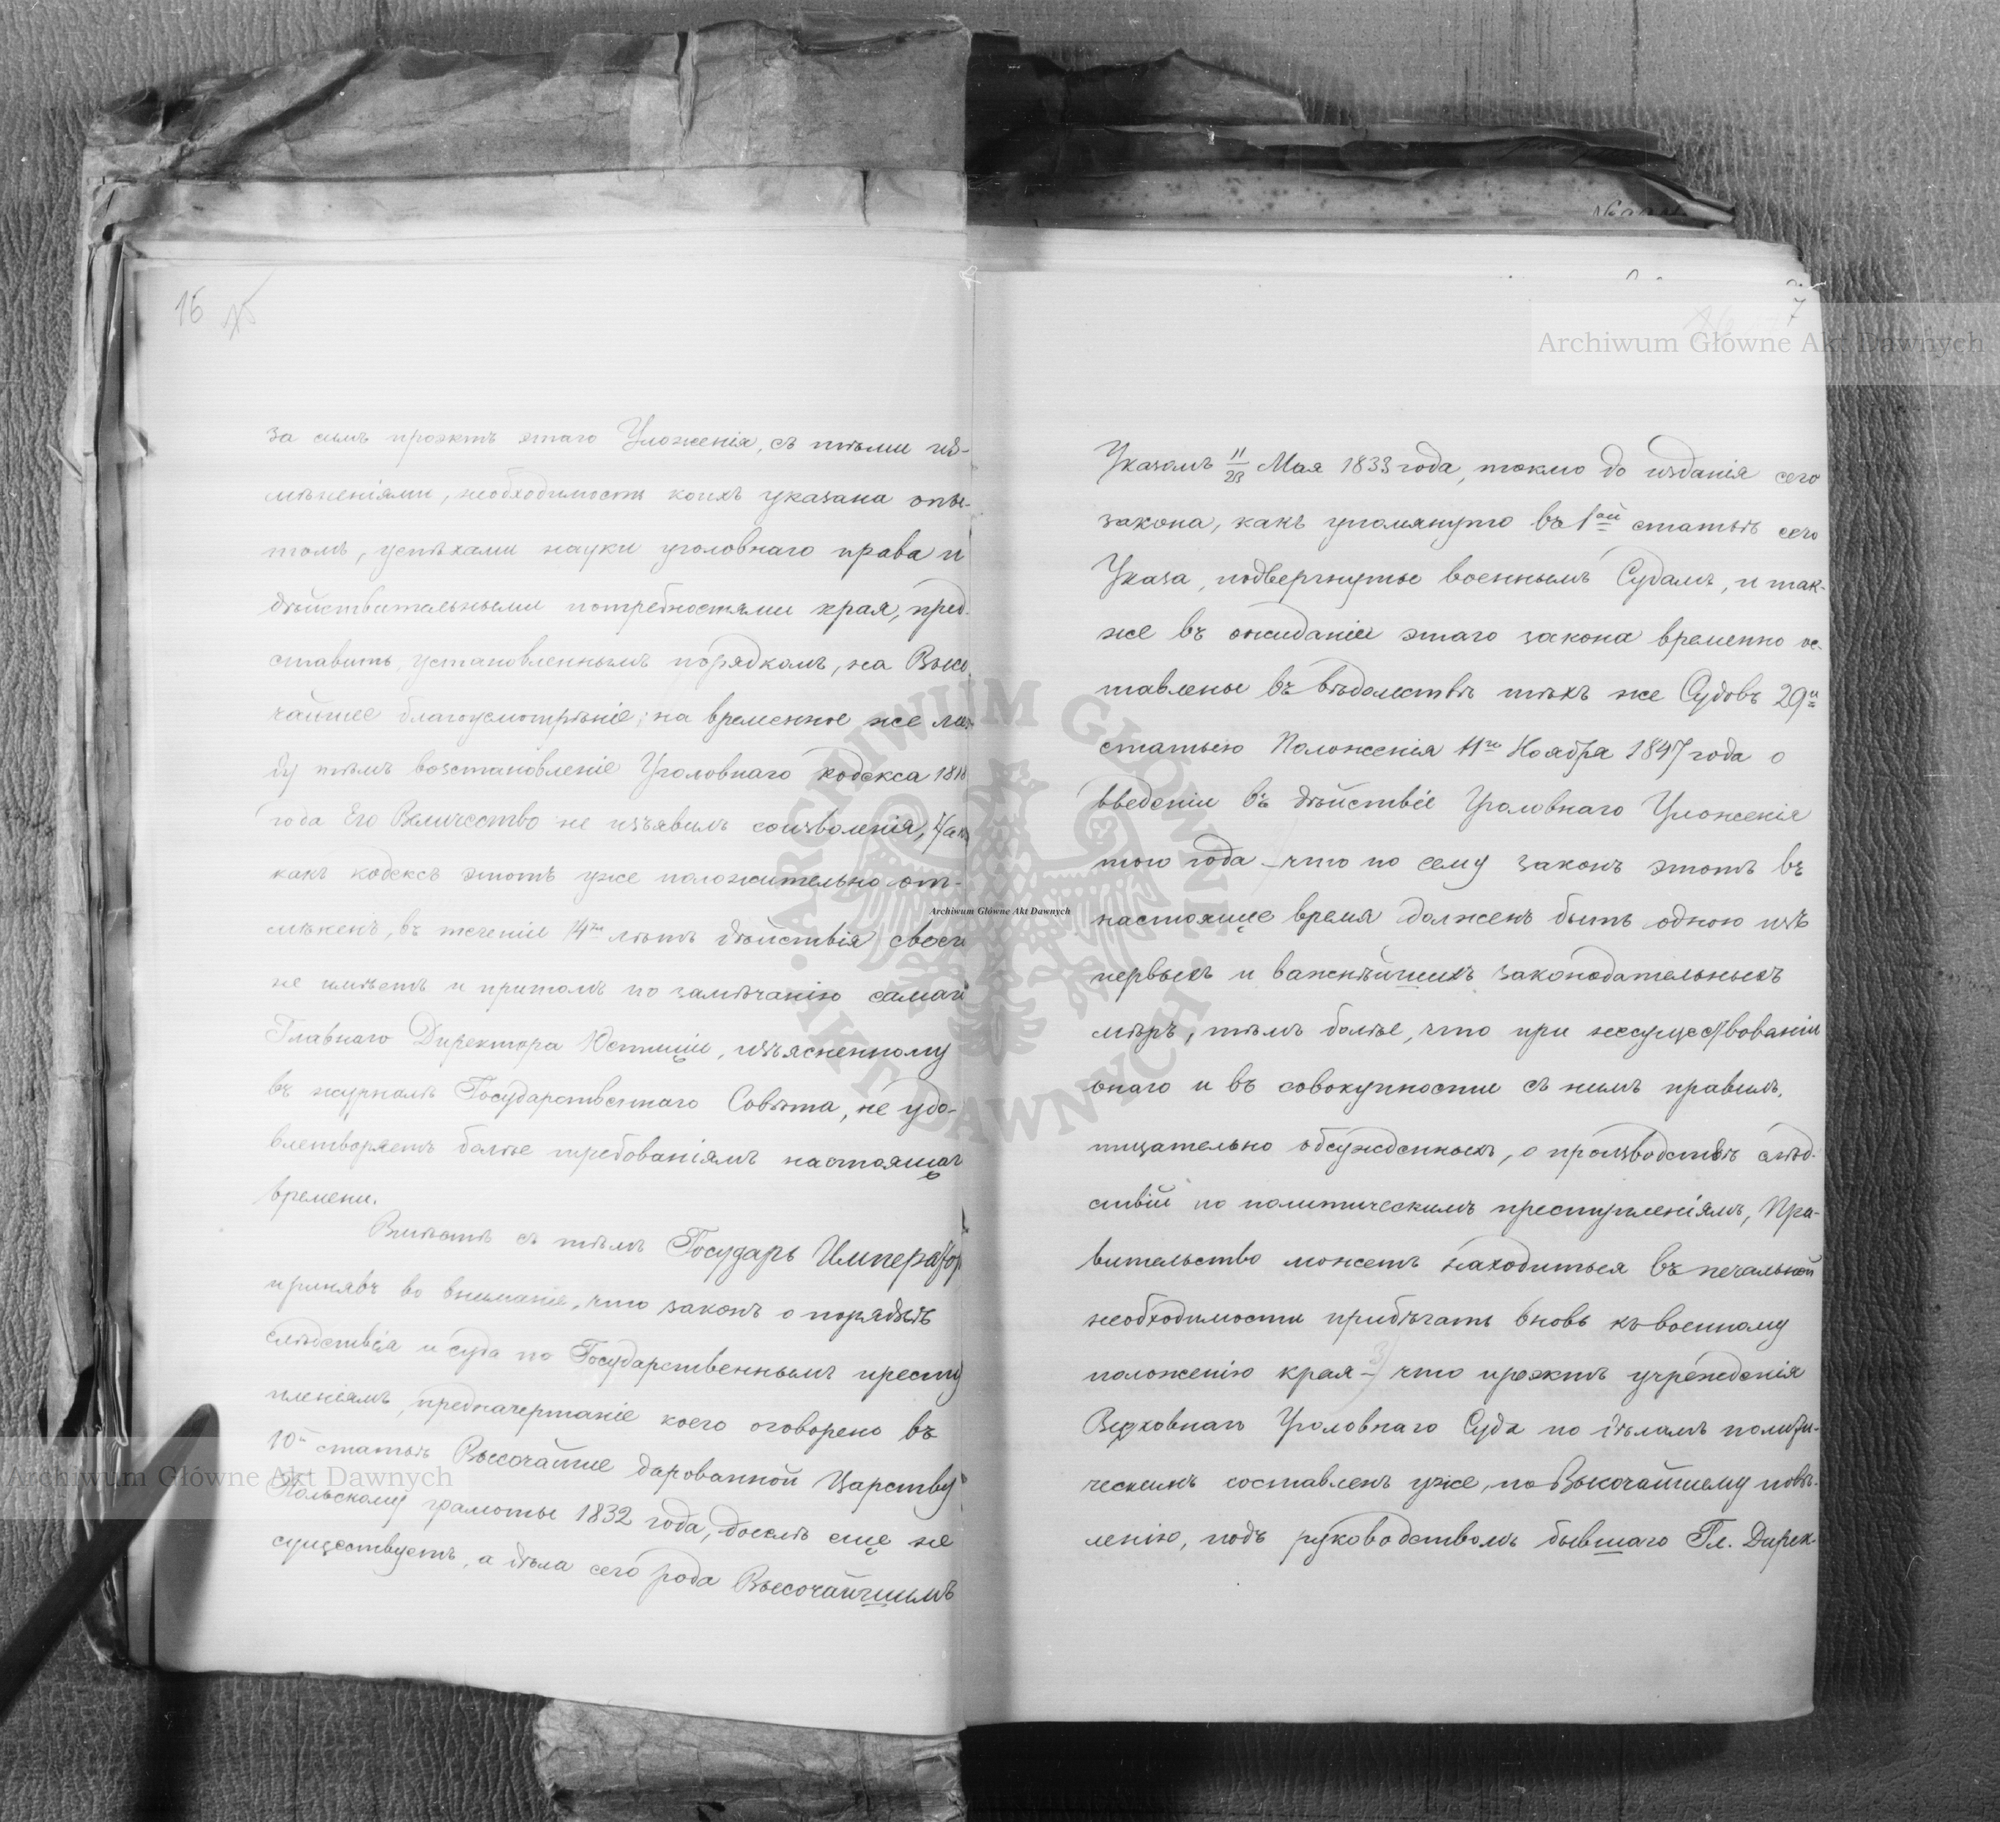 16
за симъ проэктъ этаго Уложенія, съ тѣми из-
мѣненіями, необходимость коихъ указана опы-
томъ, успѣхами науки уголовнаго права и
дѣйствительными потребностями края, пред-
ставить, установленнымъ порядкомъ, на Высо-
чайшее благоусмотрѣніе; на временное же меж-
ду тѣмъ возстановленіе Уголовнаго кодекса 1818
года Его Величество не изъявилъ соизволенія, такъ
какъ кодексъ этотъ уже положительно от-
мѣненъ, въ теченіи 14ти лѣтъ дѣйствія своего
не имѣетъ и притомъ по замѣчанію самаго
Главнаго Директора Юстиціи, изъясненному
въ журналѣ Государственнаго Совѣта, не удо-
влетворяетъ болѣе требованіямъ настоящаго
времени.
Вмѣстѣ съ тѣмъ Государь Императоръ
принявъ во вниманіе, что законъ о порядкѣ
слѣдствія и суда по Государственнымъ престу
пленіямъ, предначертаніе коего оговорено въ
10й статьѣ Высочайше дарованной Царству
Польскому грамоты 1832 года, доселѣ еще не
существуетъ, а дѣла сего рода Высочайшимъ
7
Указомъ 11/23 Мая 1833 года, токмо до изданія сего
закона, какъ упомянуто въ 1ой статьѣ сего
Указа, подвергнутые военнымъ Судамъ, и так-
же въ ожиданіи этаго закона временно ос-
тавлены въ вѣдомствѣ тѣхъ же Судовъ 29й
статьею Положенія 11го Ноября 1847 года о
введеніи въ дѣйствіе Уголовнаго Уложенія
того года – что по сему законъ этотъ въ
настоящее время долженъ быть одною изъ
первыхъ и важнѣйшихъ законодательныхъ
мѣръ, тѣмъ болѣе, что при несуществованіи
онаго и въ совокупности съ нимъ правилъ,
тщательно обсужденныхъ, о производствѣ слѣд-
ствій по политическимъ преступленіямъ, Пра-
вительство можетъ находиться въ печальной
необходимости прибѣгать вновь къ военному
положенію края – 3) что проэктъ учрежденія
Верховнаго Уголовнаго Суда по дѣламъ полити-
ческимъ составленъ уже, по Высочайшему повѣ-
ленію, подъ руководствомъ бывшаго Гл. Дирек-
Archiwum Główne Akt Dawnych
Archiwum Główne Akt Dawnych
Archiwum Główne Akt Dawnych
ARCHIWUM GŁÓWNE AKT DAWNYCH